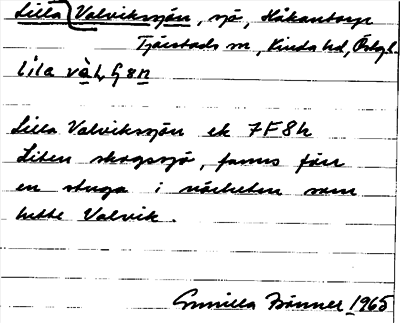 Lilla Valvikssjön, sjö, Håkantorp
Tjärstads sn, Kinda hd, Östgl.
Lilla Valvikssjön ek 7F8h
Liten skogssjö, fanns förr
en stuga i närheten som
hette Valvik.
Gunilla 1965